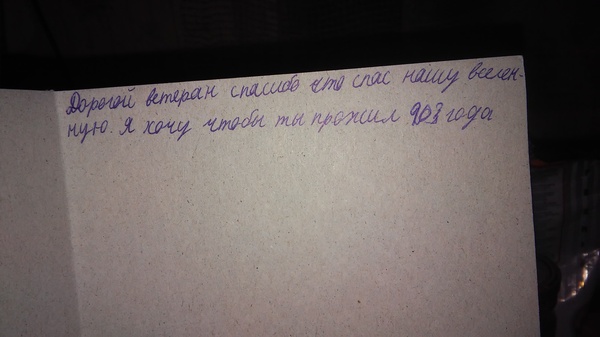 Дорогой ветеран спасибо что спас нашу вселен-
ную. Я хочу чтобы ты прожил 903 года